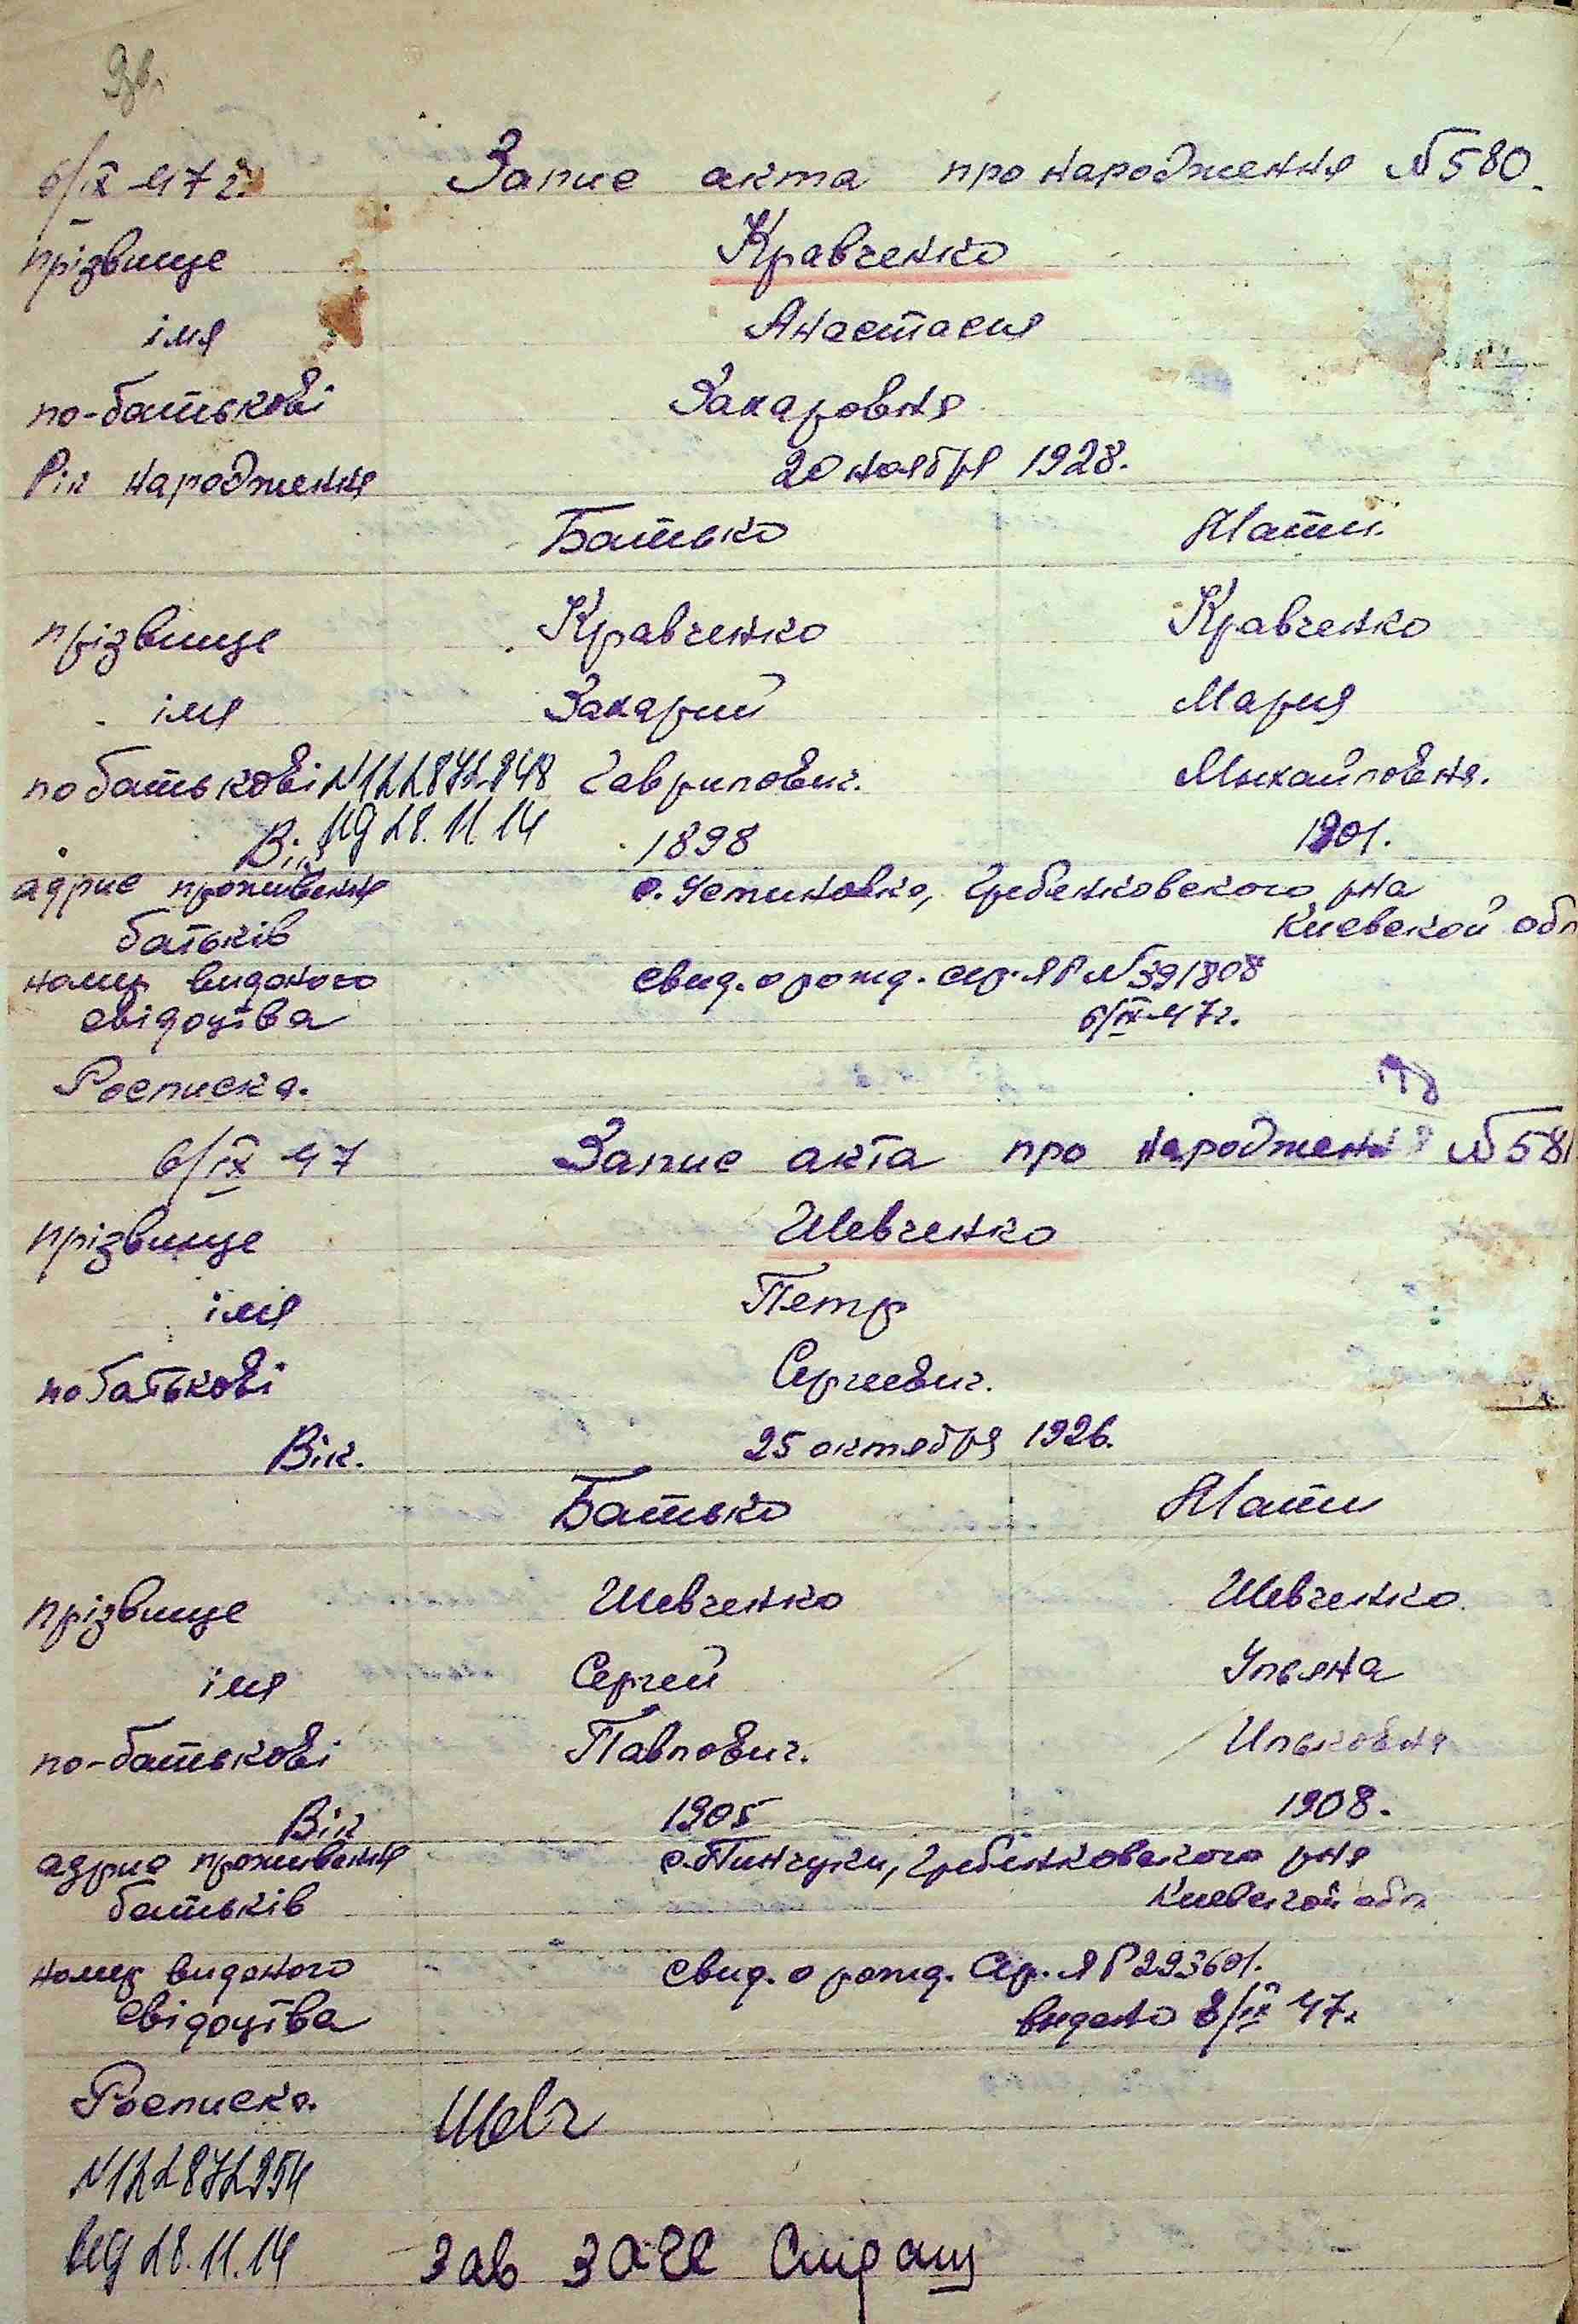 6/IX 47 г. Запис акта про народження №580.
прізвище Кравченко
імя Анастасия
по-батькові Захаровна
Рік народження 20 ноября 1928.
Батько Мати.
прізвище Кравченко Кравченко
імя Захарий Мария
по батькові N122872948 Гаврилович. Михайловна.
Вік від 28.11.14 1898 1901.
адрис проживання с. Устиновка, Гребенковского р-на
батьків Киевской обл
номер виданого свид. о рожд. сер. ЯР №391808
свідоцтва 6/IX-47г.
Росписка.
6/IX 47 Запис акта про народження №581
прізвище Шевченко
імя Петр
по батькові Сергеевич.
Вік. 25 октября 1926.
Батько Мати
прізвище Шевченко Шевченко.
імя Сергей Ульяна
по-батькові Павлович. Ильковна
Вік 1905 1908.
адрис проживання с. Пинчуки, Гребенковского р-на
батьків Киевской обл
номер виданого свид. о рожд. Сер. ЯР 293601.
свідоцтва видано 8/IX 47г.
Росписка. Шевч
N122872954
від 28.11.14 Зав ЗАГС